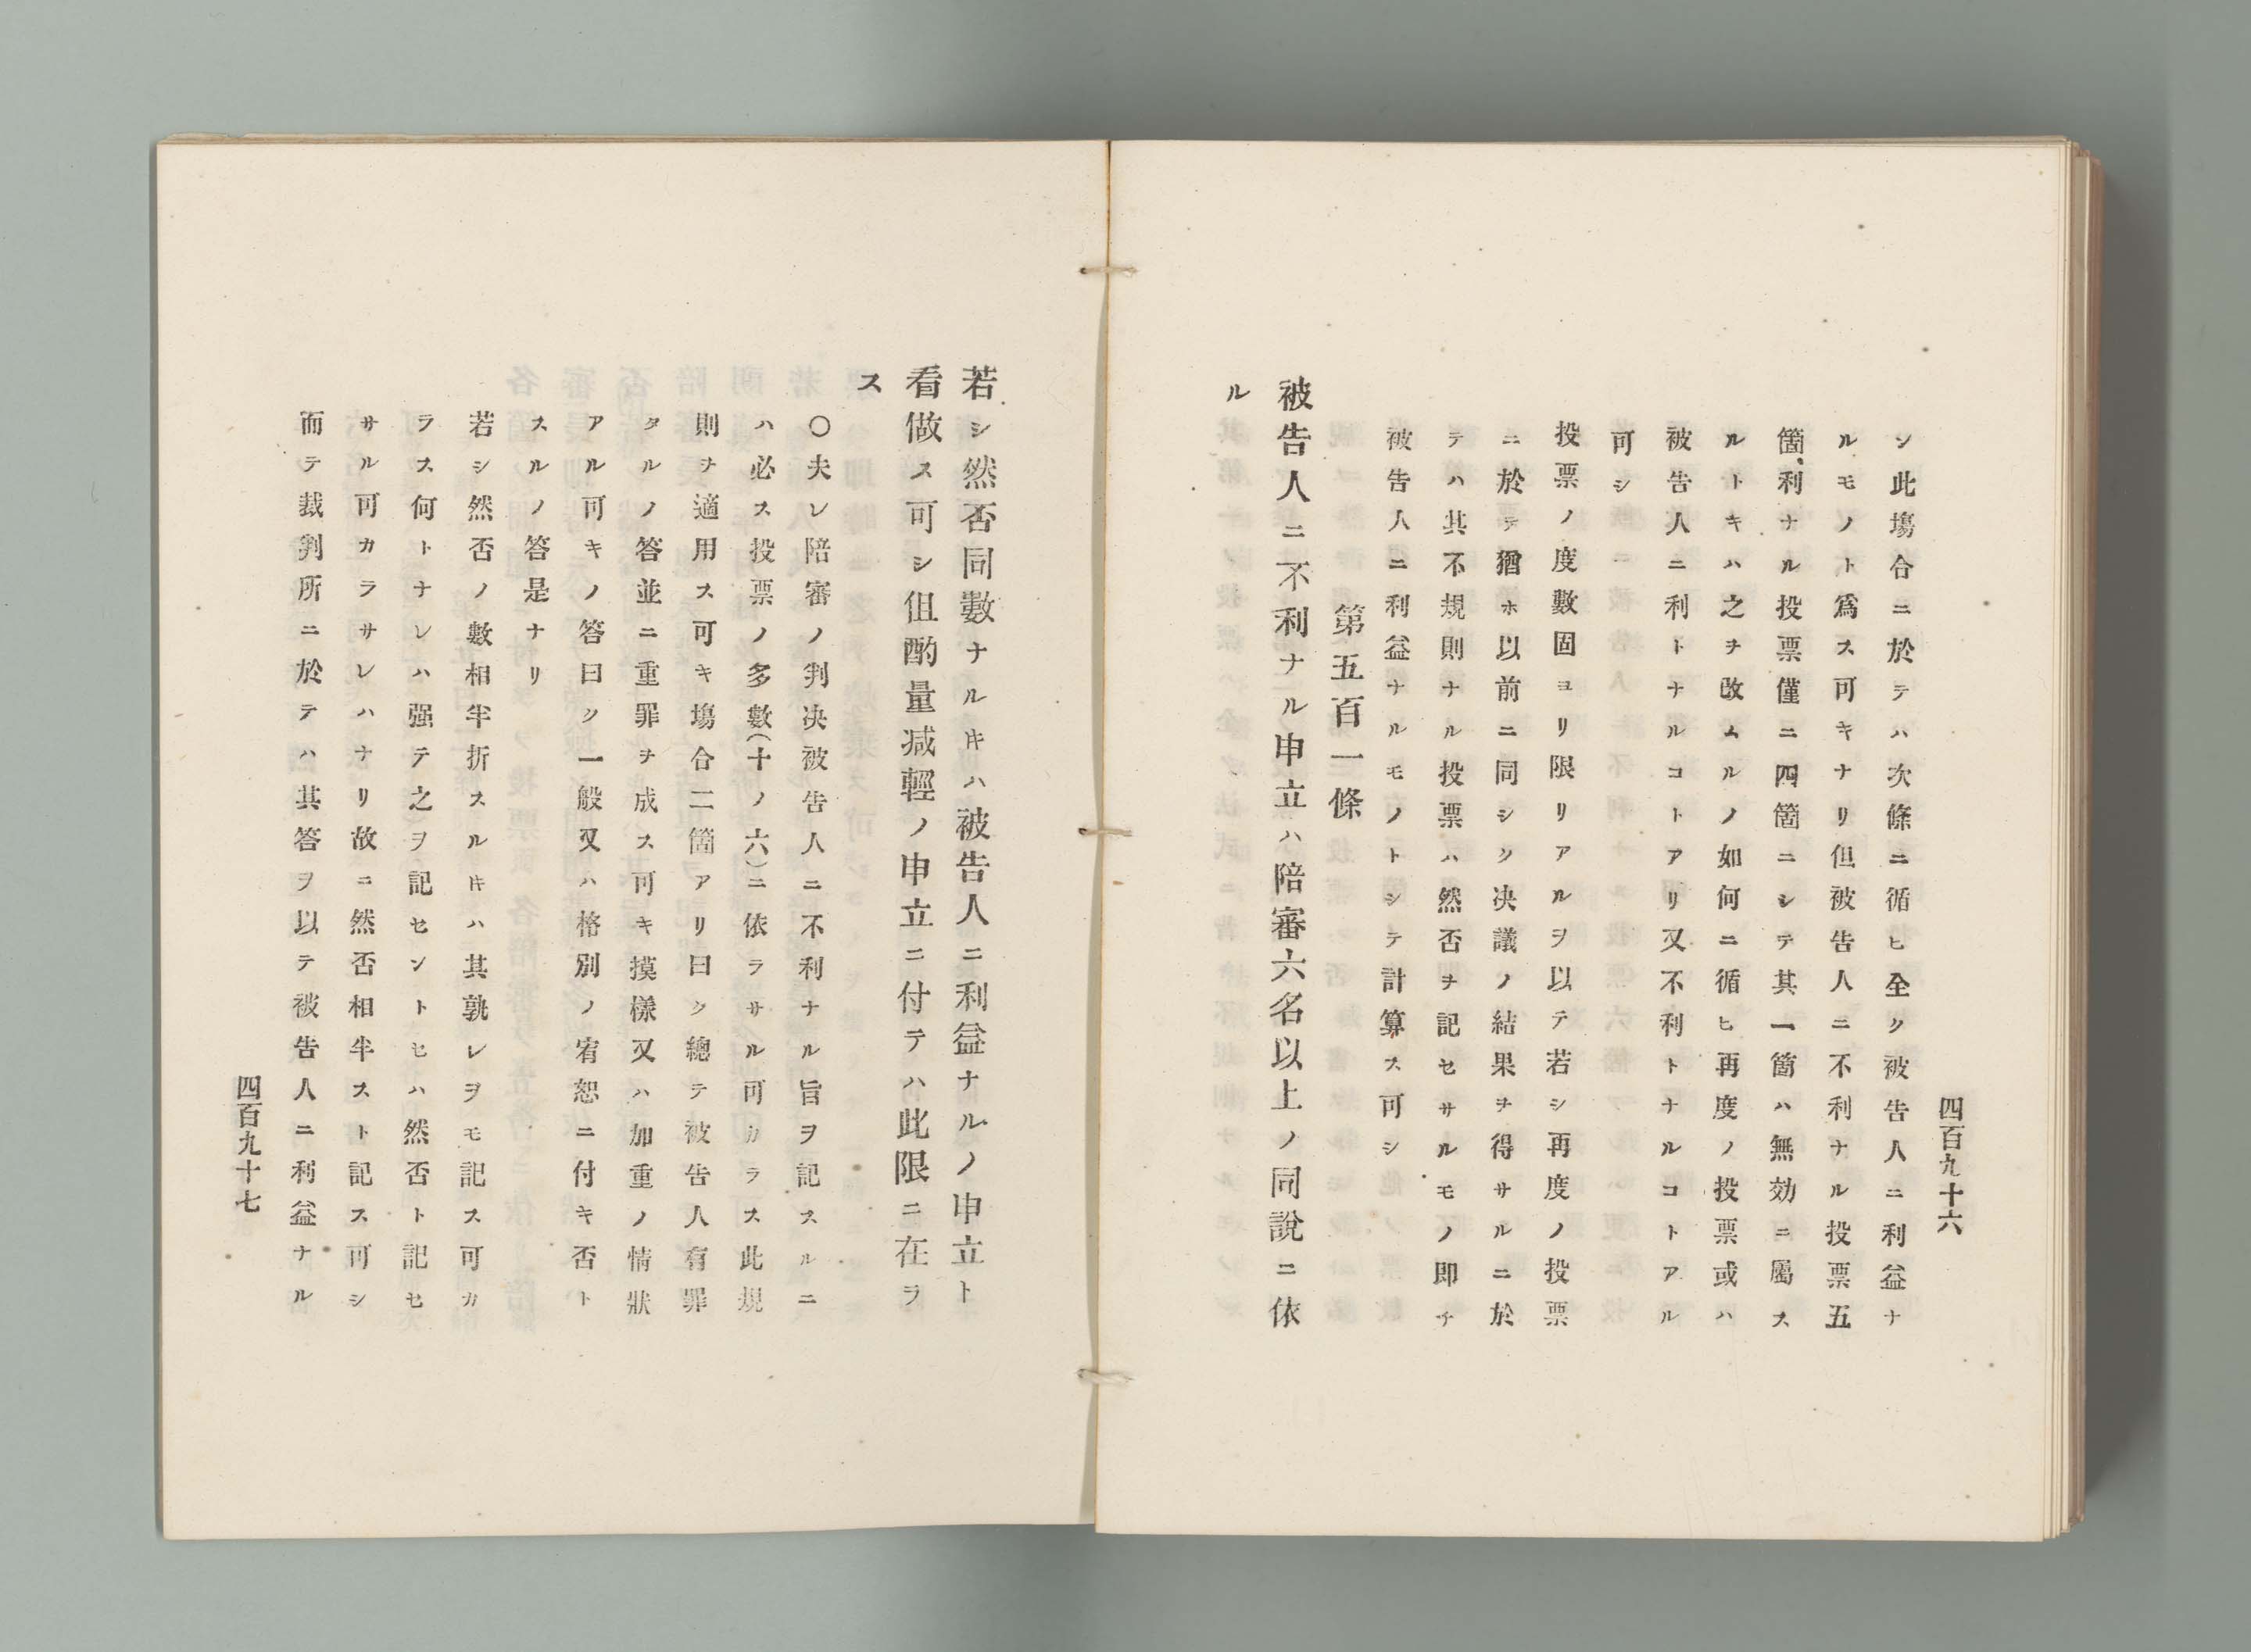 四百九十六
ン此塲合ニ於テハ次條ニ循ヒ全ク被告人ニ利益ナ
ルモノト爲ス可キナリ但被告人ニ不利ナル投票五
箇、利ナル投票僅ニ四箇ニシテ其一箇ハ無効ニ屬ス
ルトキハ之ヲ改ムルノ如何ニ循ヒ再度ノ投票或ハ
被告人ニ利トナルコトアリ又不利トナルコトアル
可シ
投票ノ度數固ヨリ限リアルヲ以テ若シ再度ノ投票
ニ於テ猶ホ以前ニ同シク决議ノ結果ヲ得サルニ於
テハ其不規則ナル投票ハ然否ヲ記セサルモノ即チ
被告人ニ利益ナルモノトシテ計算ス可シ
第五百一條
被告人ニ不利ナル申立ハ陪審六名以上ノ同說ニ依
ル
若シ然否同數ナルキハ被告人ニ利益ナルノ申立ト
看做ス可シ但酌量减輕ノ申立ニ付テハ此限ニ在ラ
ス
〇夫レ陪審ノ判决被告人ニ不利ナル旨ヲ記スルニ
ハ必ス投票ノ多數(十ノ六)ニ依ラサル可カラス此規
則ヲ適用ス可キ塲合二箇アリ曰ク總テ被告人有罪
タルノ答並ニ重罪ヲ成ス可キ摸樣又ハ加重ノ情狀
アル可キノ答曰ク一般又ハ格別ノ宥恕ニ付キ否ト
スルノ答是ナリ
若シ然否ノ數相半折スルキハ其孰レヲモ記ス可カ
ラス何トナレハ强テ之ヲ記セントセハ然否ト記セ
サル可カラサレハナリ故ニ然否相半スト記ス可シ
而テ裁判所ニ於テハ其答ヲ以テ被告人ニ利益ナル
四百九十七